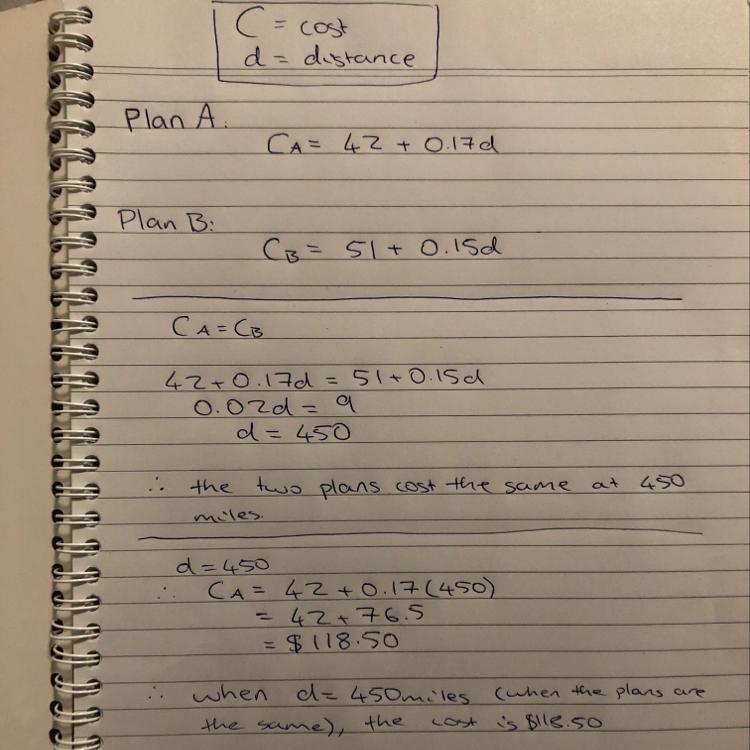 C = cost
d = distance
Plan A:
CA = 42 + 0.17d
Plan B:
CB = 51 + 0.15d
CA = CB
42 + 0.17d = 51 + 0.15d
0.02d = 9
d = 450
∴ the two plans cost the same at 450
miles.
d = 450
∴ CA = 42 + 0.17(450)
= 42 + 76.5
= $118.50
∴ when d = 450miles (when the plans are
the same), the cost is $118.50